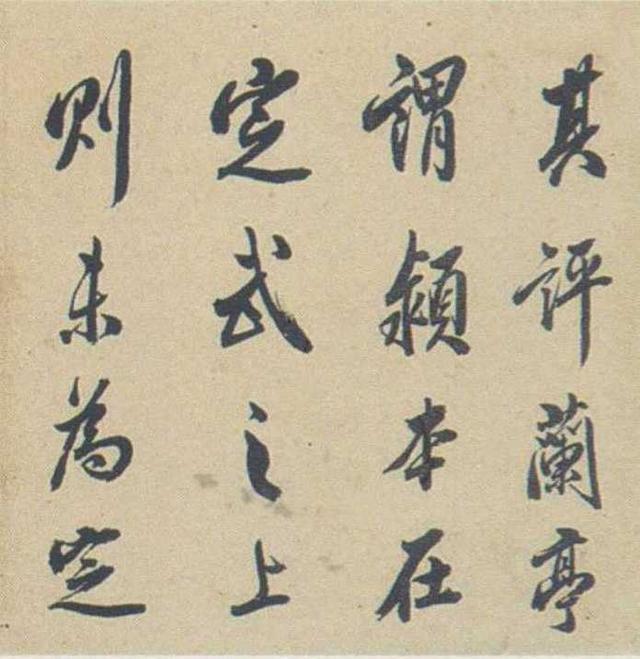 其評蘭亭
謂潁本在
定武之上
則未為定